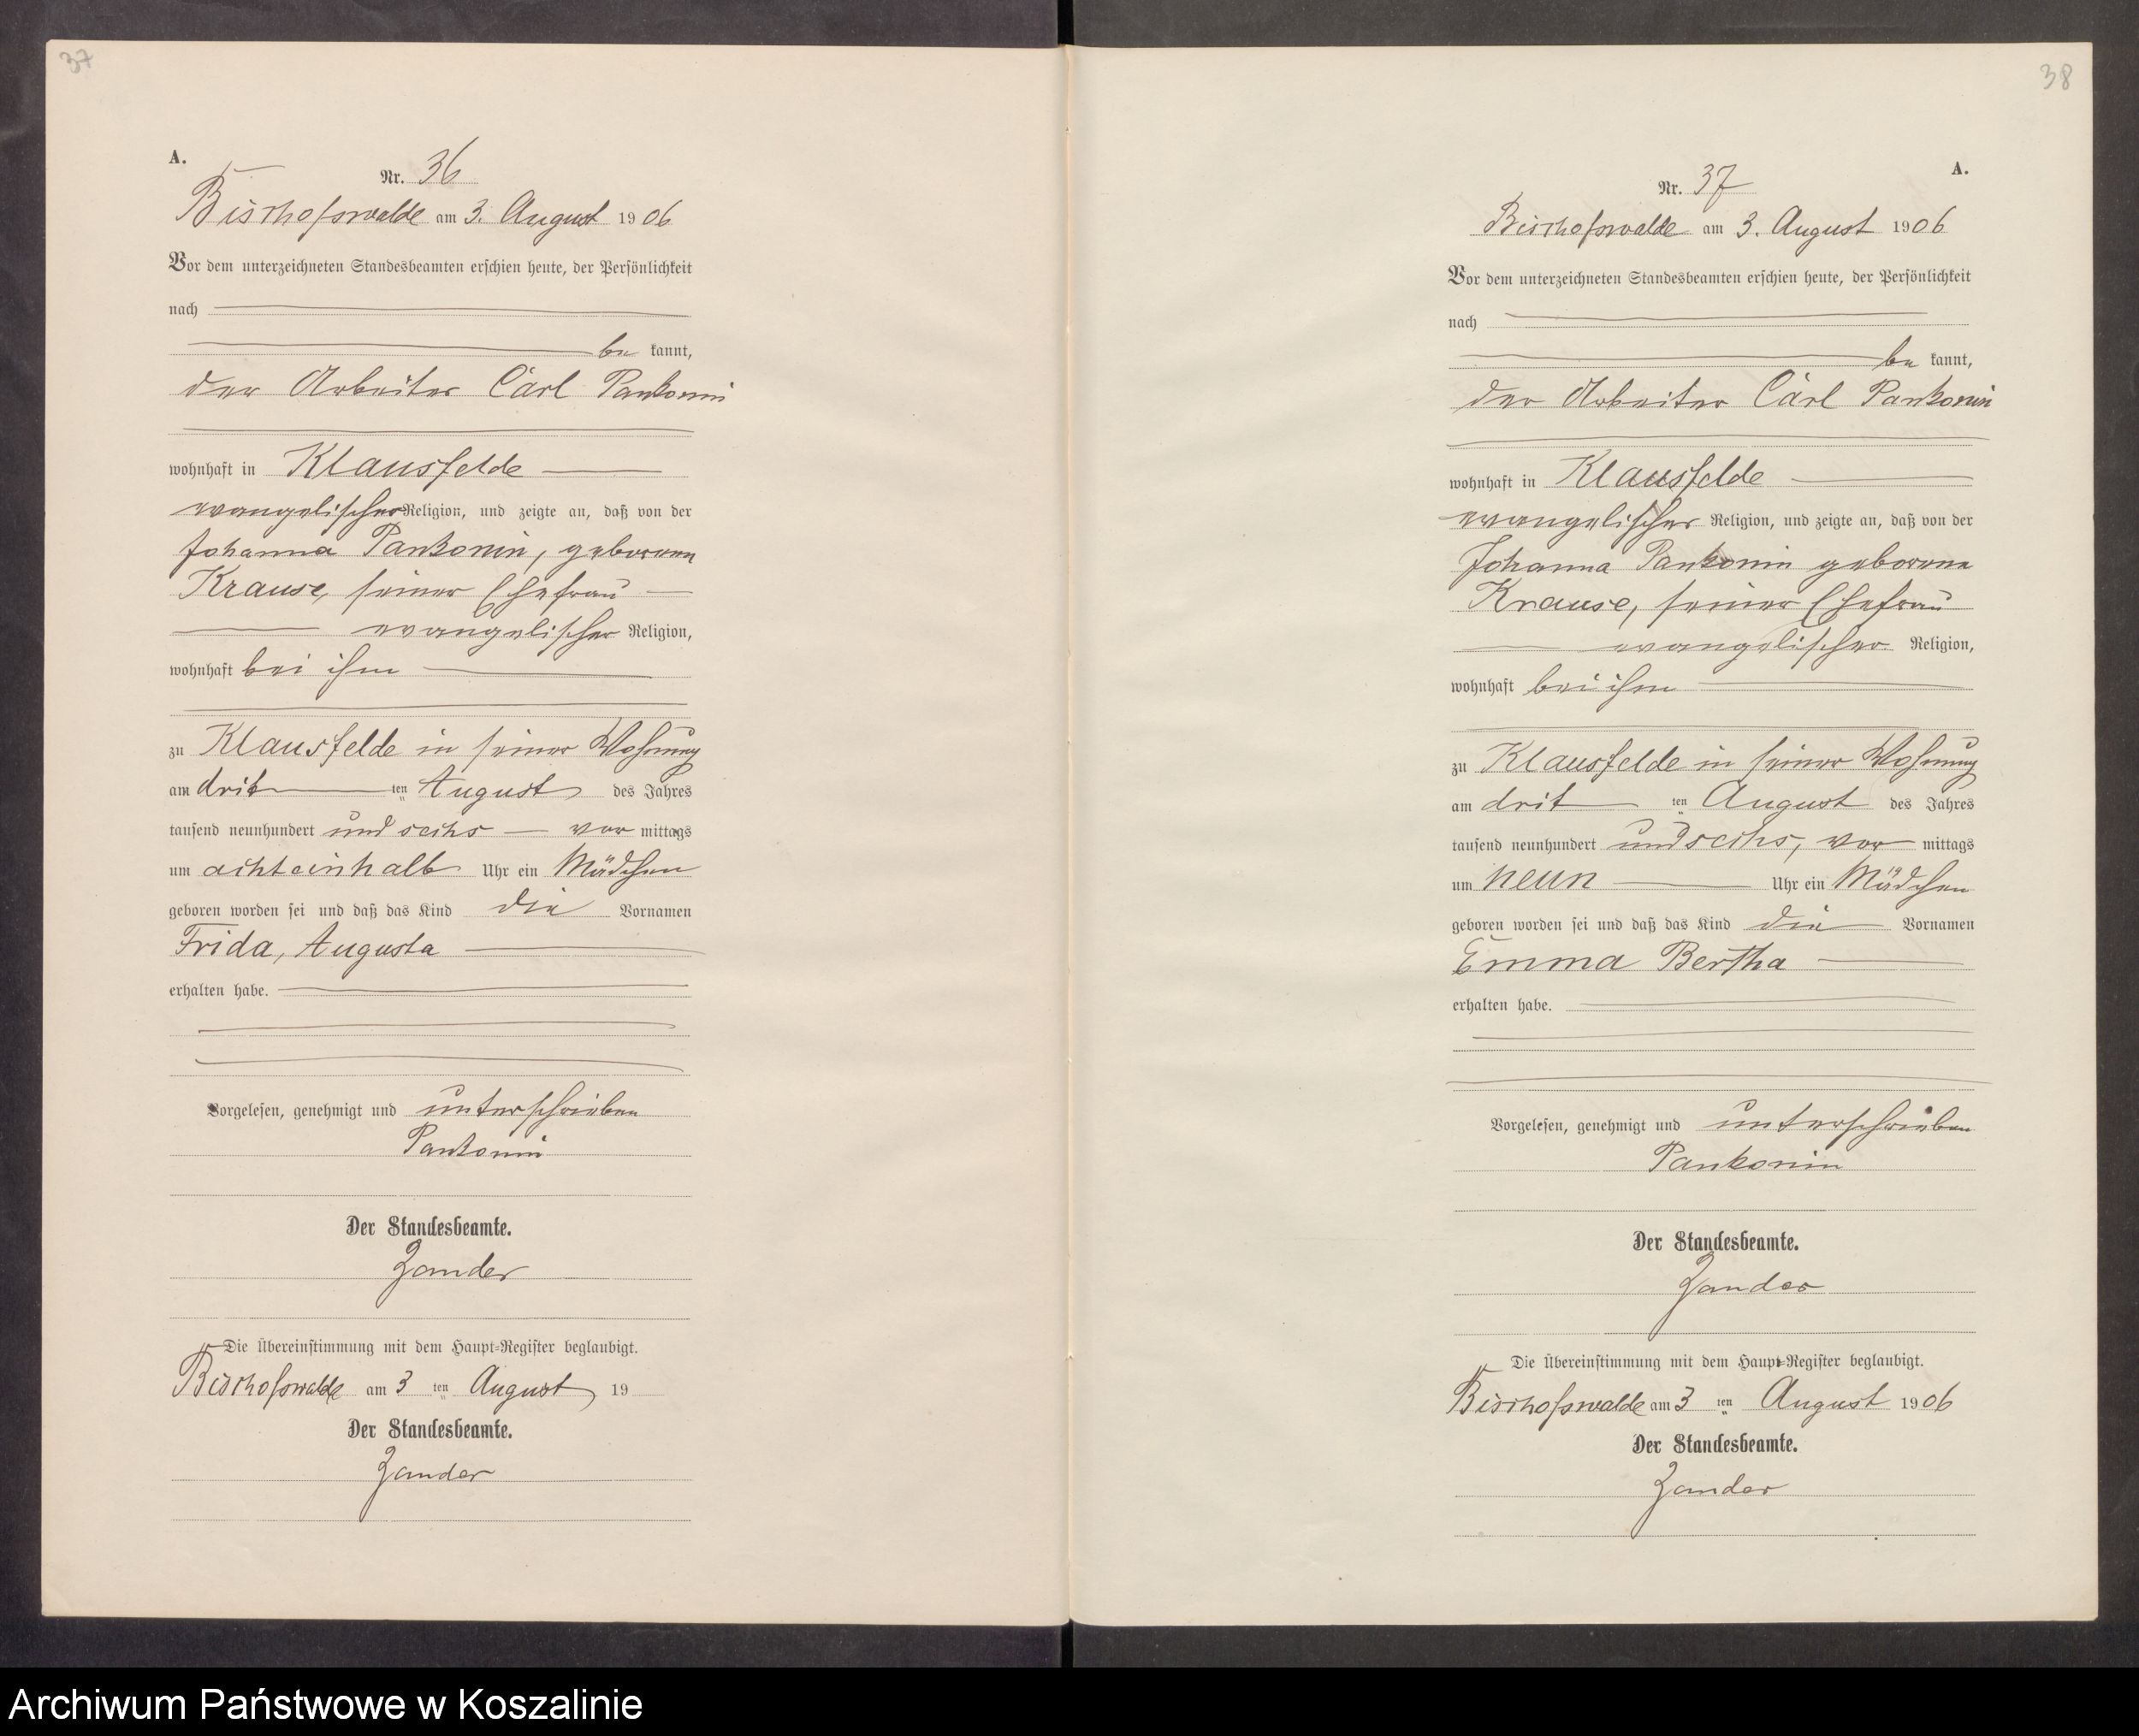 37
A.
Nr. 36
Bischofswalde am 3. August 1906
Vor dem unterzeichneten Standesbeamten erschien heute, der Persönlichkeit
nach
be kannt,
der Arbeiter Carl Pankonin
wohnhaft in Klausfelde
evangelischer Religion, und zeigte an, daß von der
Johanna Pankonin, geborenen
Krause, seiner Ehefrau
evangelischer Religion,
wohnhaft bei ihm
zu Klausfelde in seiner Wohnung
am dritten August des Jahres
tausend neunhundert und sechs vor mittags
um achteinhalb Uhr ein Mädchen
geboren worden sei und daß das Kind die Vornamen
Frida, Augusta
erhalten habe.
Vorgelesen, genehmigt und unterschrieben
Pankonin
Der Standesbeamte.
Zander
Die Übereinstimmung mit dem Haupt-Register beglaubigt.
Bischofswalde am 3 ten August 19
Der Standesbeamte.
Zander
38
A.
Nr. 37
Bischofswalde am 3. August 1906
Vor dem unterzeichneten Standesbeamten erschien heute, der Persönlichkeit
nach
be kannt,
der Arbeiter Carl Pankonin
wohnhaft in Klausfelde
evangelischer Religion, und zeigte an, daß von der
Johanna Pankonin geborene
Krause, seiner Ehefrau
evangelischer Religion,
wohnhaft bei ihm
zu Klausfelde in seiner Wohnung
am dritten August des Jahres
tausend neunhundert und sechs, vor mittags
um neun Uhr ein Mädchen
geboren worden sei und daß das Kind die Vornamen
Emma Bertha
erhalten habe.
Vorgelesen, genehmigt und unterschrieben
Pankonin
Der Standesbeamte.
Zander
Die Übereinstimmung mit dem Haupt-Register beglaubigt.
Bischofswalde am 3 ten August 1906
Der Standesbeamte.
Zander
Archiwum Państwowe w Koszalinie